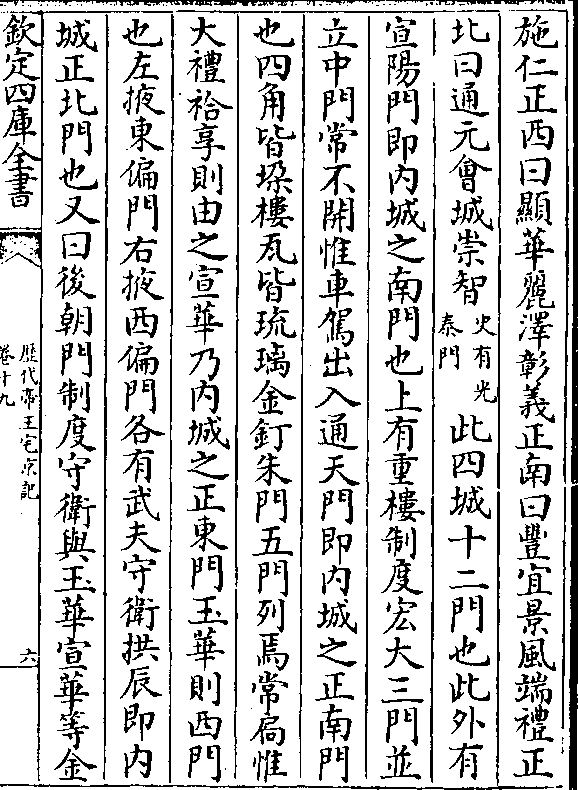 施仁正西曰顯華麗澤彰義正南曰豐宜景風端禮正
北曰通元會城崇智史有光泰門此四城十二門也此外有
宣陽門即内城之南門也上有重樓制度宏大三門並
立中門常不開惟車駕出入通天門即内城之正南門
也四角皆垜樓瓦皆琉璃金釘朱門五門列焉常扃惟
大禮祫享則由之宣華乃内城之正東門玉華則西門
也左掖東偏門右掖西偏門各有武夫守衛拱辰即内
城正北門也又曰後朝門制度守衛與玉華宣華等金
欽定四庫全書
歷代帝王宅京記
卷十九
六